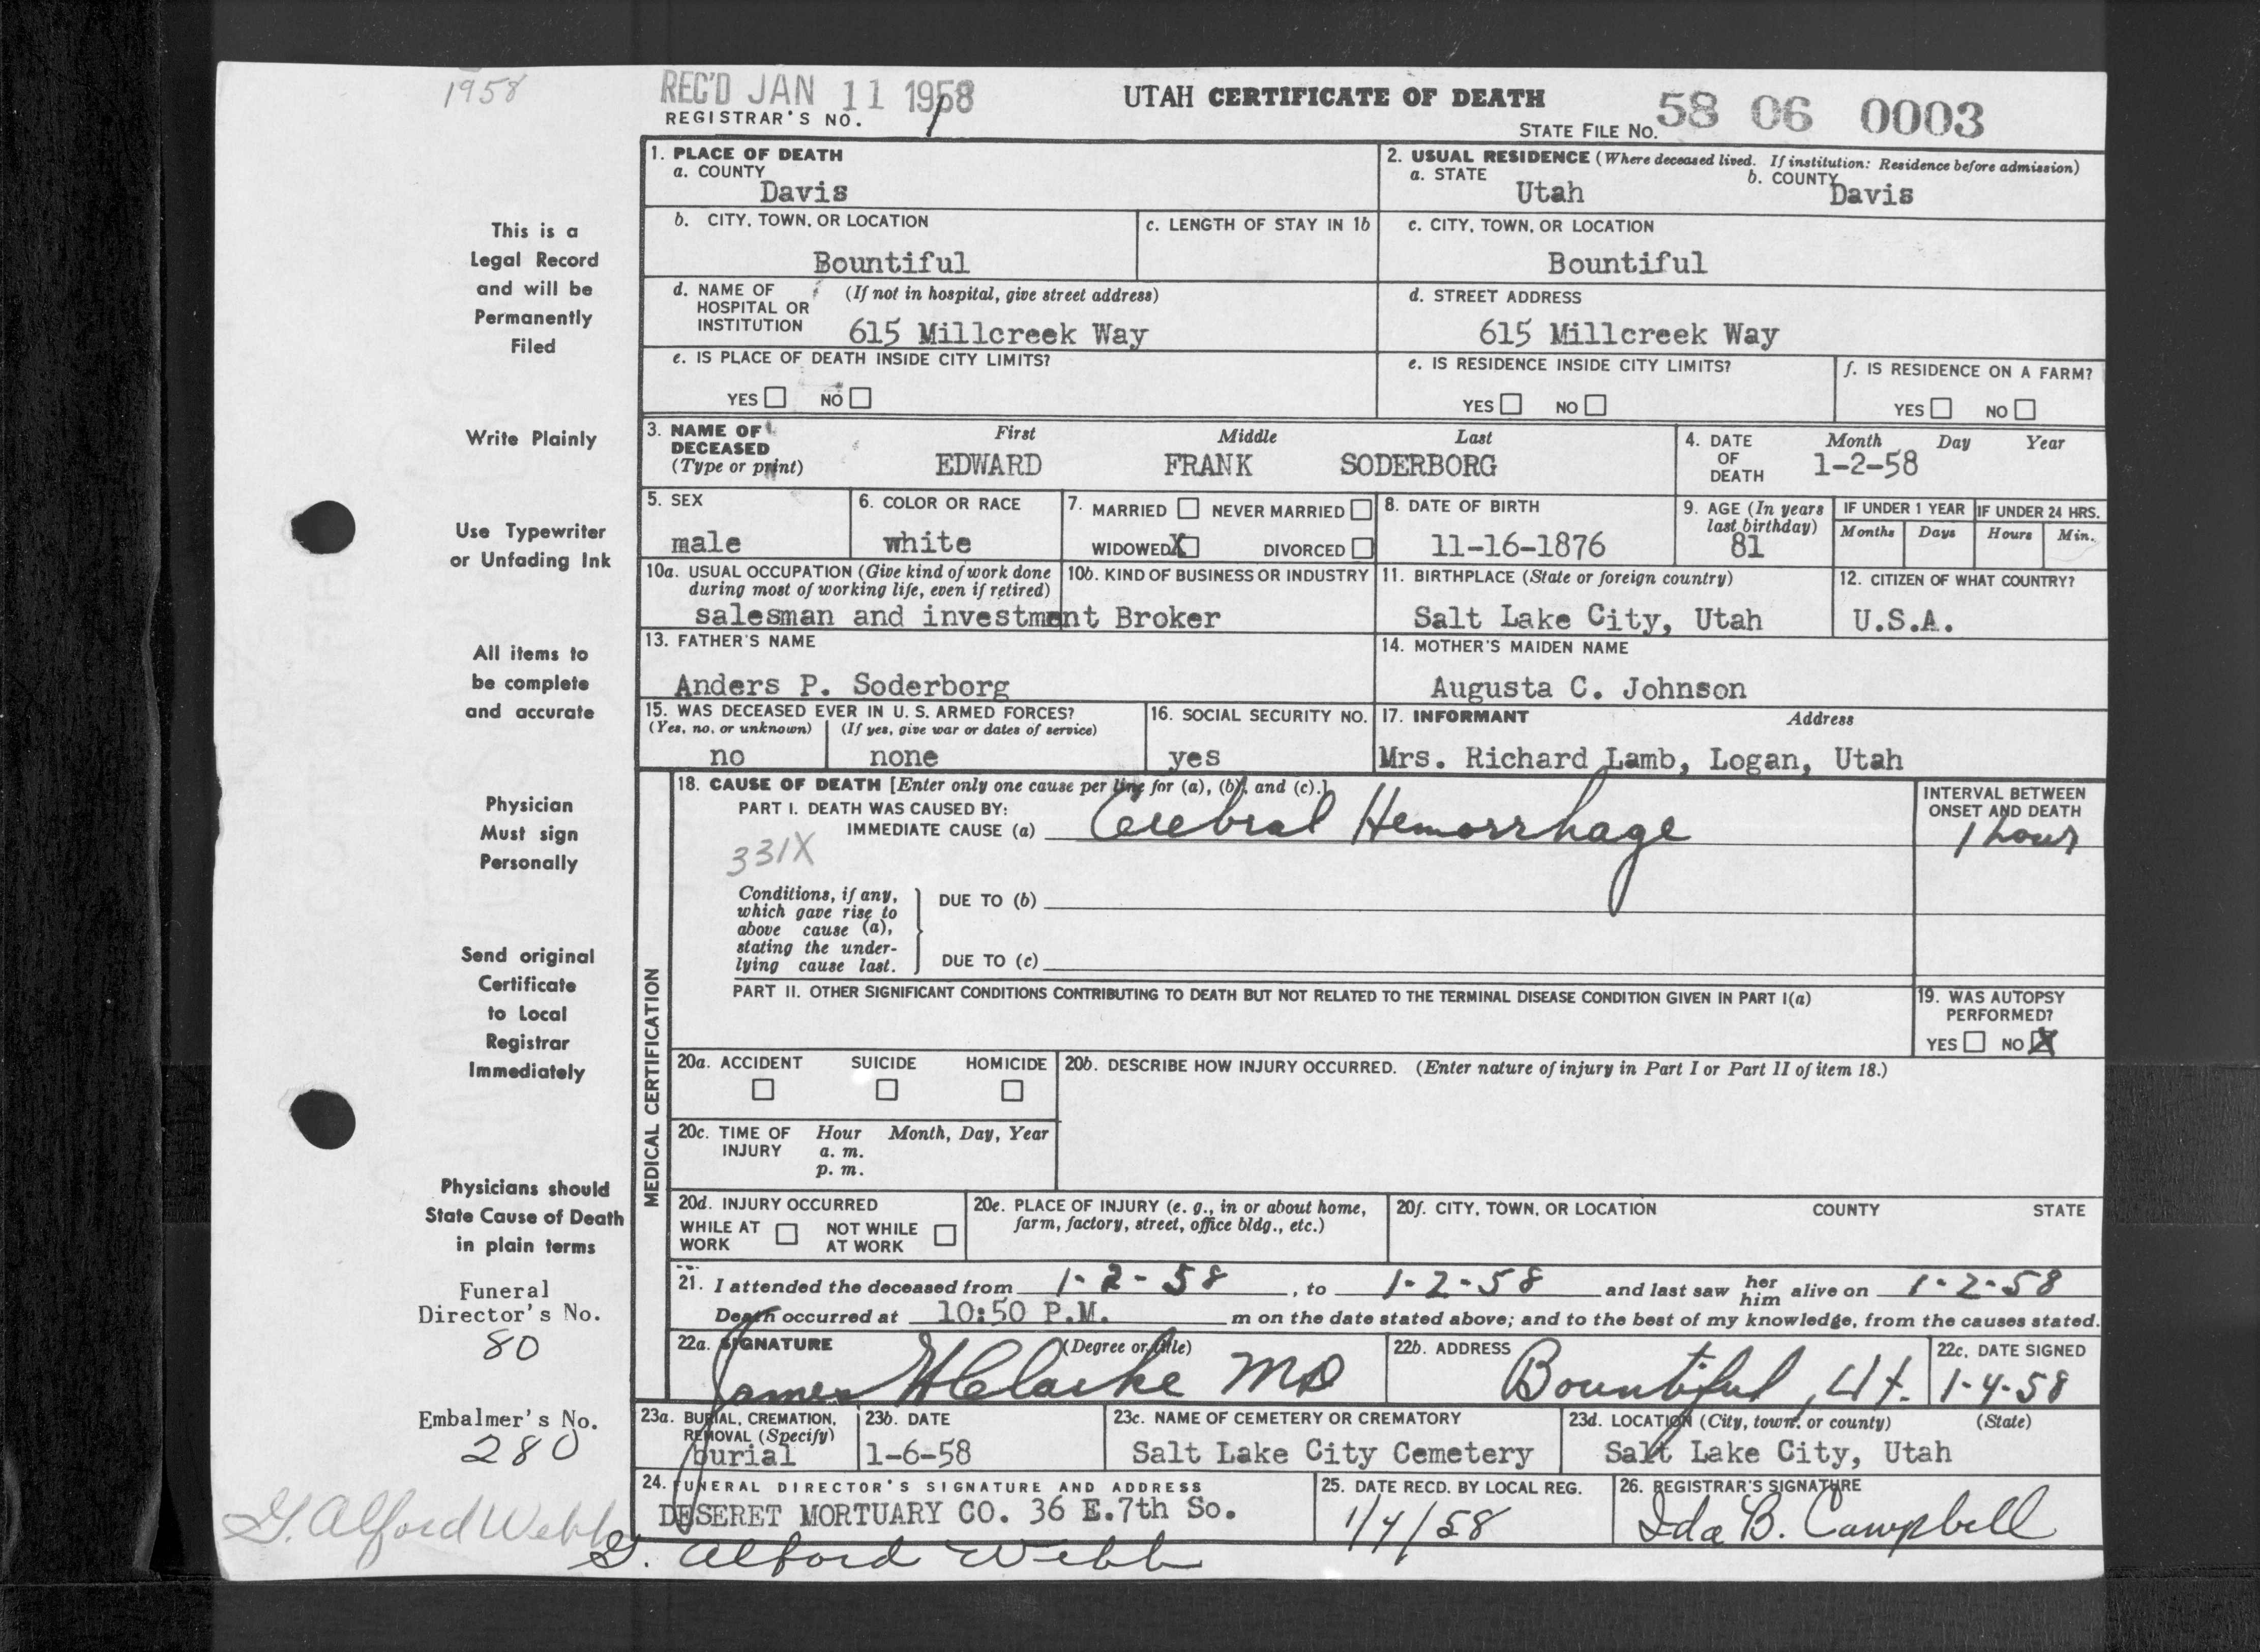 1958
REC'D JAN 11 1958
REGISTRAR'S NO. 1
UTAH CERTIFICATE OF DEATH
STATE FILE No. 58 06 0003
This is a
Legal Record
and will be
Permanently
Filed
Write Plainly
Use Typewriter
or Unfading Ink
All items to
be complete
and accurate
Physician
Must sign
Personally
Send original
Certificate
to Local
Registrar
Immediately
Physicians should
State Cause of Death
in plain terms
Funeral
Director's No.
80
Embalmer's No.
280
G. Alford Webb
1. PLACE OF DEATH
a. COUNTY
Davis
2. USUAL RESIDENCE (Where deceased lived. If institution: Residence before admission)
a. STATE b. COUNTY
Utah Davis
b. CITY, TOWN, OR LOCATION
Bountiful
c. LENGTH OF STAY IN 1b
c. CITY, TOWN, OR LOCATION
Bountiful
d. NAME OF (If not in hospital, give street address)
HOSPITAL OR
INSTITUTION 615 Millcreek Way
d. STREET ADDRESS
615 Millcreek Way
e. IS PLACE OF DEATH INSIDE CITY LIMITS?
YES NO
e. IS RESIDENCE INSIDE CITY LIMITS?
YES NO
f. IS RESIDENCE ON A FARM?
YES NO
3. NAME OF First Middle Last
DECEASED
(Type or print) EDWARD FRANK SODERBORG
4. DATE Month Day Year
OF 1-2-58
DEATH
5. SEX
male
6. COLOR OR RACE
white
7. MARRIED NEVER MARRIED
WIDOWED X DIVORCED
8. DATE OF BIRTH
11-16-1876
9. AGE (In years
last birthday)
81
IF UNDER 1 YEAR
Months Days
IF UNDER 24 HRS.
Hours Min.
10a. USUAL OCCUPATION (Give kind of work done
during most of working life, even if retired)
10b. KIND OF BUSINESS OR INDUSTRY
salesman and investment Broker
11. BIRTHPLACE (State or foreign country)
Salt Lake City, Utah
12. CITIZEN OF WHAT COUNTRY?
U.S.A.
13. FATHER'S NAME
Anders P. Soderborg
14. MOTHER'S MAIDEN NAME
Augusta C. Johnson
15. WAS DECEASED EVER IN U. S. ARMED FORCES?
(Yes, no, or unknown) (If yes, give war or dates of service)
no none
16. SOCIAL SECURITY NO.
yes
17. INFORMANT Address
Mrs. Richard Lamb, Logan, Utah
MEDICAL CERTIFICATION
18. CAUSE OF DEATH [Enter only one cause per line for (a), (b), and (c).]
PART I. DEATH WAS CAUSED BY:
IMMEDIATE CAUSE (a) Cerebral Hemorrhage
331X
INTERVAL BETWEEN
ONSET AND DEATH
1 hour
Conditions, if any,
which gave rise to
above cause (a),
stating the under-
lying cause last.
DUE TO (b)
DUE TO (c)
PART II. OTHER SIGNIFICANT CONDITIONS CONTRIBUTING TO DEATH BUT NOT RELATED TO THE TERMINAL DISEASE CONDITION GIVEN IN PART I(a)
19. WAS AUTOPSY
PERFORMED?
YES NO X
20a. ACCIDENT SUICIDE HOMICIDE
20b. DESCRIBE HOW INJURY OCCURRED. (Enter nature of injury in Part I or Part II of item 18.)
20c. TIME OF Hour Month, Day, Year
INJURY a. m.
p. m.
20d. INJURY OCCURRED
WHILE AT NOT WHILE
WORK AT WORK
20e. PLACE OF INJURY (e. g., in or about home,
farm, factory, street, office bldg., etc.)
20f. CITY, TOWN, OR LOCATION COUNTY STATE
21. I attended the deceased from 1-2-58, to 1-2-58 and last saw her him alive on 1-2-58
Death occurred at 10:50 P.M. m on the date stated above; and to the best of my knowledge, from the causes stated.
22a. SIGNATURE (Degree or title)
James H Clarke MD
22b. ADDRESS
Bountiful, Ut.
22c. DATE SIGNED
1-4-58
23a. BURIAL, CREMATION,
REMOVAL (Specify)
burial
23b. DATE
1-6-58
23c. NAME OF CEMETERY OR CREMATORY
Salt Lake City Cemetery
23d. LOCATION (City, town, or county) (State)
Salt Lake City, Utah
24. FUNERAL DIRECTOR'S SIGNATURE AND ADDRESS
DESERET MORTUARY CO. 36 E.7th So.
G. Alford Webb
25. DATE RECD. BY LOCAL REG.
1/7/58
26. REGISTRAR'S SIGNATURE
Ida B. Campbell